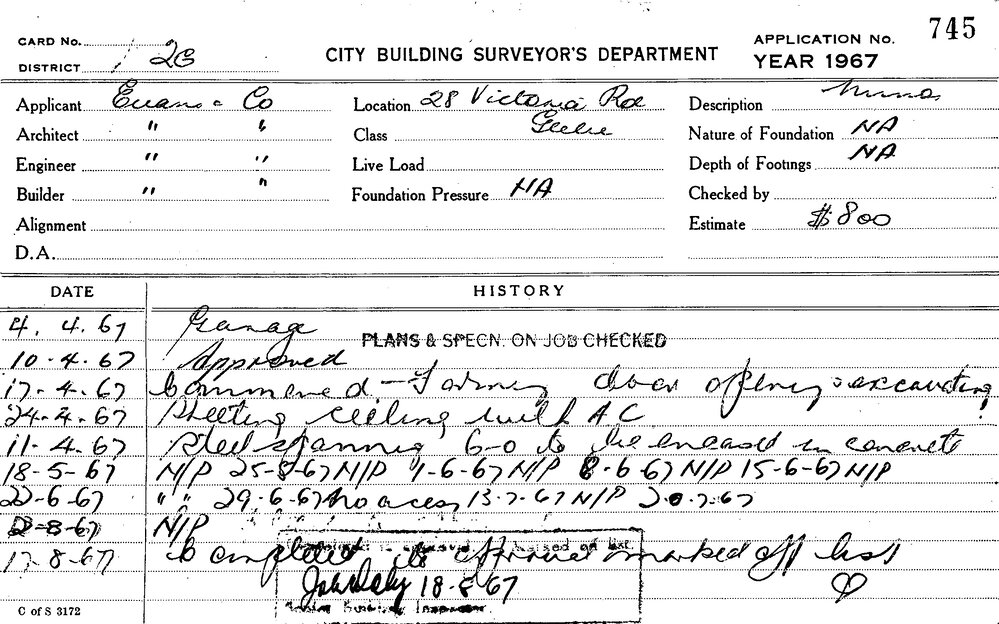 745
CARD No.
DISTRICT 2G
CITY BUILDING SURVEYOR'S DEPARTMENT
APPLICATION No.
YEAR 1967
Applicant Evans & Co Location 28 Victoria Rd Description
Architect " " Class Glebe Nature of Foundation NA
Engineer " " Live Load Depth of Footings NA
Builder " " Foundation Pressure NA Checked by
Alignment Estimate $800
D.A.
DATE HISTORY
4. 4. 67 Garage
PLANS & SPECN. ON JOB CHECKED
10-4-67 Approved
17-4-67 Commenced - Forming door opening & excavating
24-4-67 Sheeting ceiling with A C
11-4-67 Steel spanning 6-0 to be encased in concrete
18-5-67 N/P 25-5-67 N/P 1-6-67 N/P 8-6-67 N/P 15-6-67 N/P
22-6-67 " " 29-6-67 No access 13-7-67 N/P 20-7-67
-8-67 N/P
17-8-67 Completed as approved marked off list
18-8-67
C of S 3172